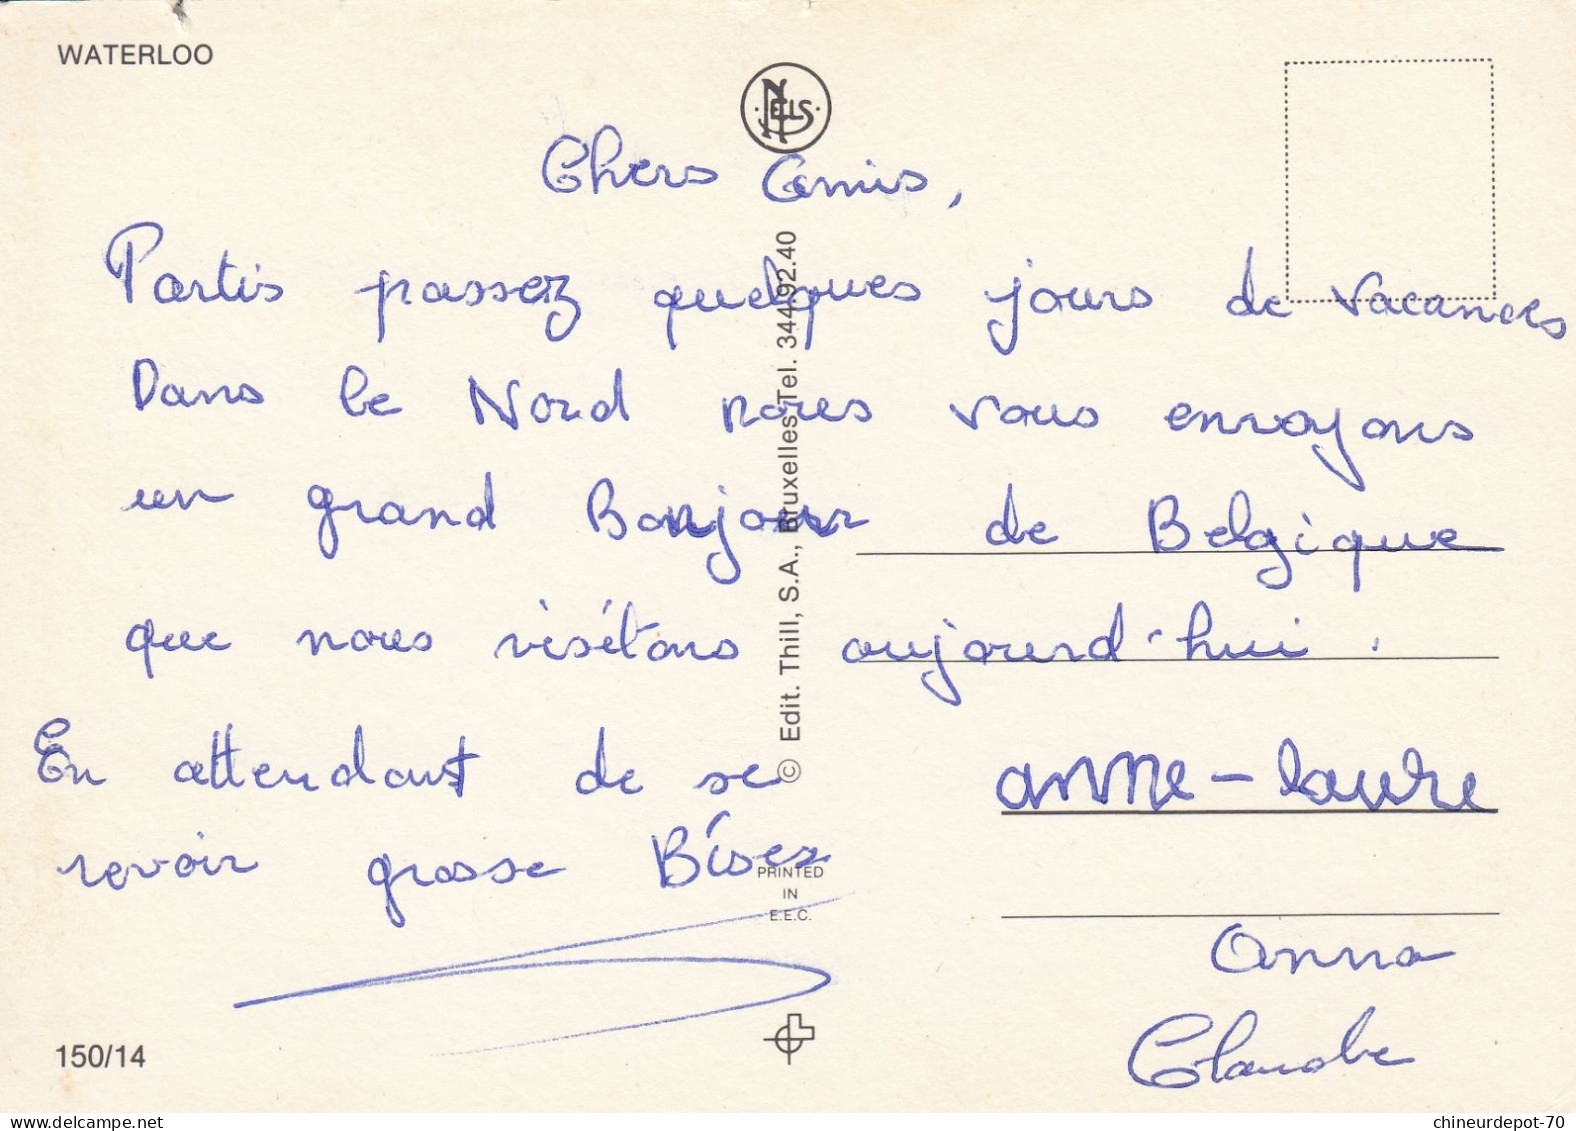 WATERLOO
NELS
Chers Amis,
Partis passez quelques jours de vacances
Dans le Nord nous vous envoyons
un grand Bonjour de Belgique
que nous visitons aujourd'hui.
En attendant de se
revoir grosse Bises
anne-laure
Anna
Claude
© Edit. Thill, S.A., Bruxelles Tel. 344.92.40
PRINTED
IN
E.E.C.
150/14
delcampe.net
chineurdepot-70